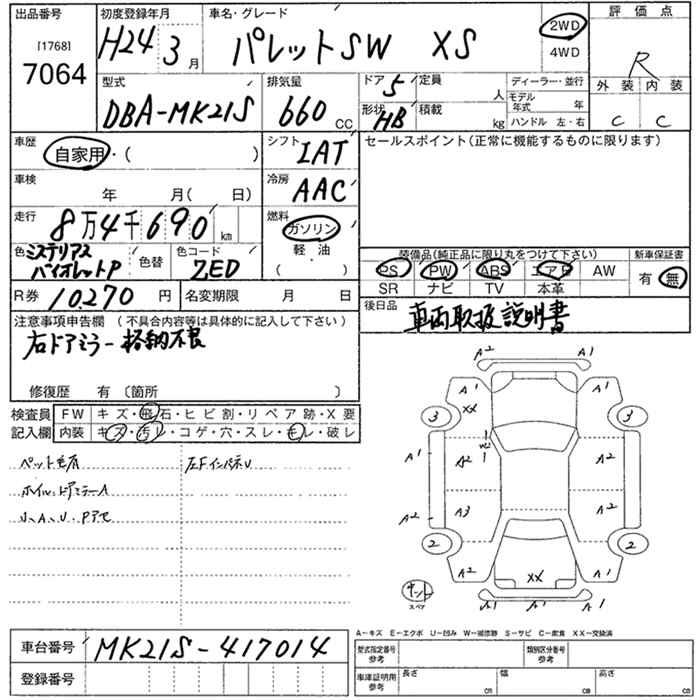 出品番号 初度登録年月 車名・グレード 評価点
[1768] H24 3月 パレットSW XS 2WD R
7064 4WD
型式 排気量 ドア 定員 ディーラー・並行 外装 内装
DBA-MK21S 660 CC 5 人 モデル年式 年 C C
形状 HB 積載 kg ハンドル 左・右
車歴 シフト セールスポイント(正常に機能するものに限ります)
自家用・( ) IAT
車検 冷房
年 月( 日) AAC
走行 燃料
8万4千690 km ガソリン
軽・油
( )
色 ミステリアスバイオレットP 色替 色コード ZED
装備品(純正品に限り丸をつけて下さい) 新車保証書
PS PW ABS エアB AW 有 無
SR ナビ TV 本革
R券 10,270 円 名変期限 月 日
後日品 車両取扱説明書
注意事項申告欄 (不具合内容等は具体的に記入して下さい)
右ドアミラー格納不良
修復歴 有 〔箇所 〕
検査員 FW キズ・飛石・ヒビ割・リペア跡・X要
記入欄 内装 キズ・汚レ・コゲ・穴・スレ・モレ・破レ
ペット毛有 左FインパネU
ホイル、ドアミラーA
A2 A1
A1 A1
XX
3 3
W2
A1 A2 A2 A1
A2 A3 A2 A2
2 2
A2 XX A1
スペア
A1 A1 A1
A－キズ E－エクボ U－凹み W－補修跡 S－サビ C－腐食 XX－交換済
車台番号 MK21S-417014
登録番号
型式指定番号 参考 類別区分番号 参考
車庫証明用 参考 長さ cm 幅 cm 高さ cm